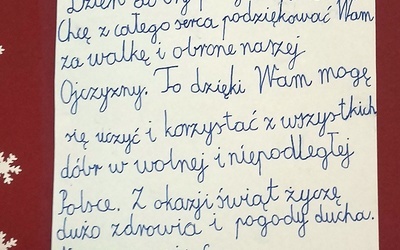 Dzień do
Chcę z całego serca podziękować Wam
za walkę i obronę naszej
Ojczyzny. To dzięki Wam mogę
się uczyć i korzystać z wszystkich
dóbr w wolnej i niepodległej
Polsce. Z okazji świąt życzę
dużo zdrowia i pogody ducha.